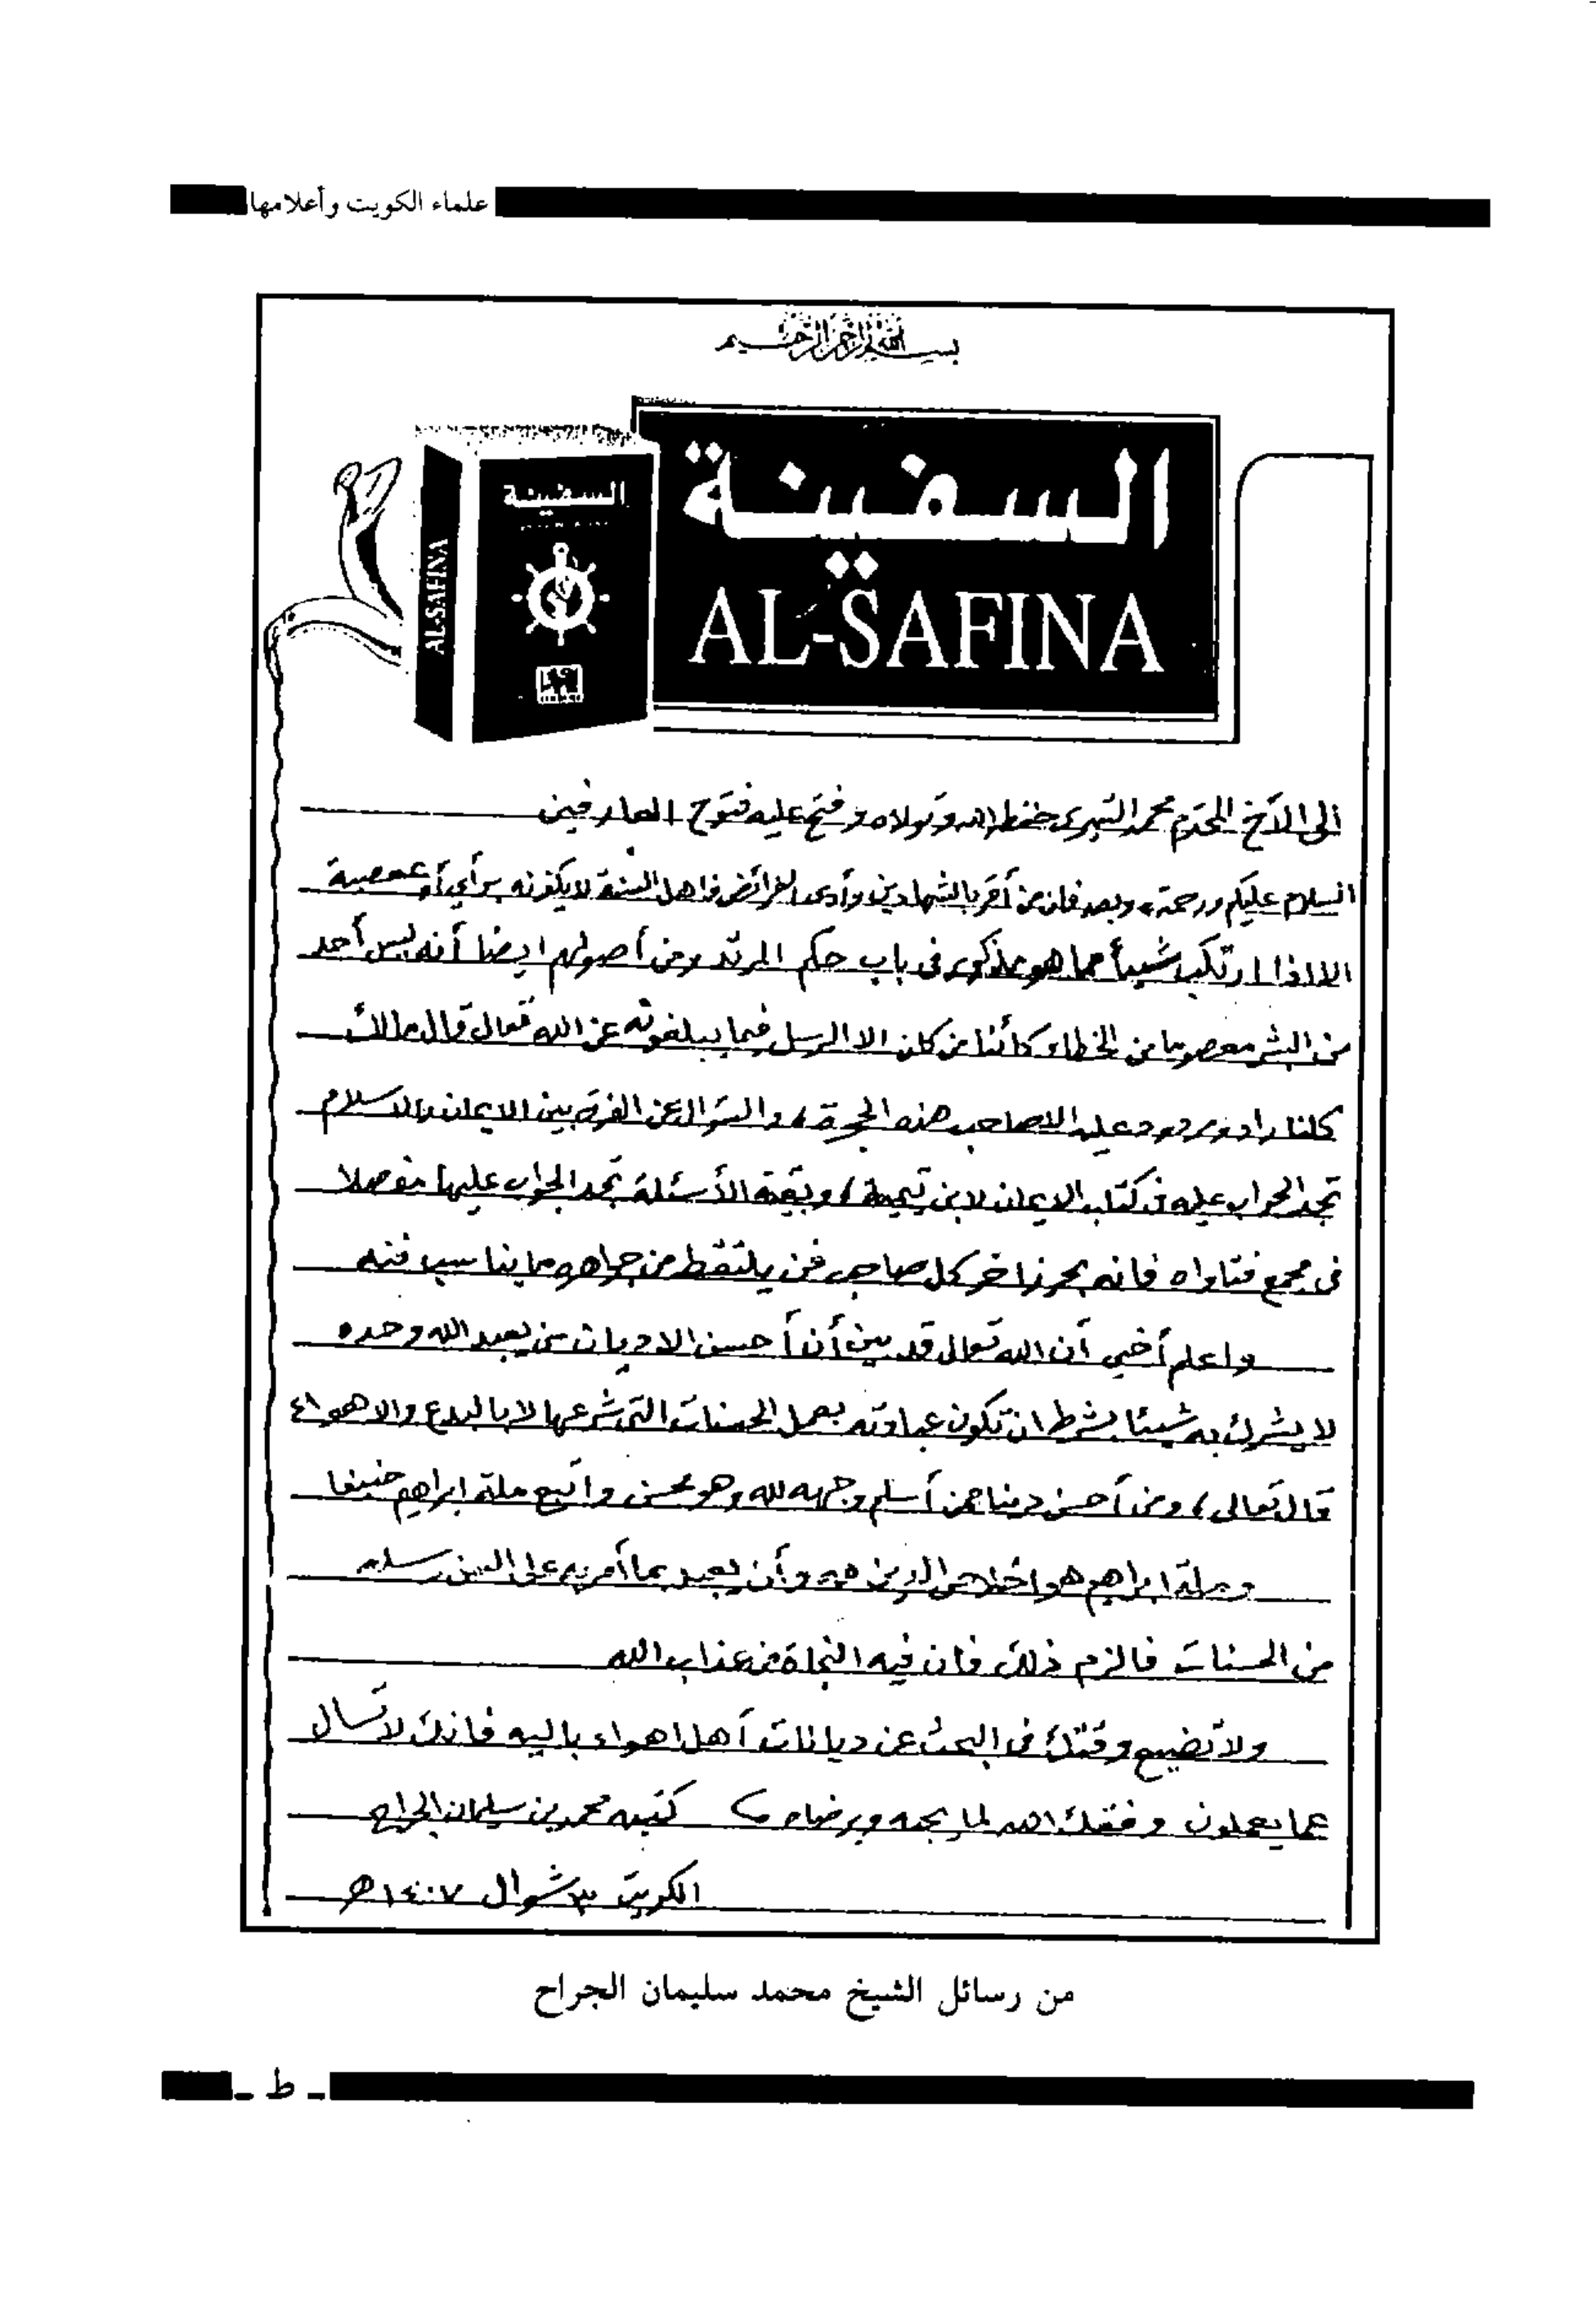 علماء الكويت وأعلامها
بسم الله الرحمن الرحيم
السفينة
AL-SAFINA
السفينة
AL-SAFINA
الى الأخ المحترم محمد حفظه الله وتولاه وفتح عليه فتوح العارفين
السلام عليكم ورحمة، وبعد فان من أقر بالشهادتين وأدى الفرائض فاهل السنة لا يكفرونه برأي أو عصبية
الا اذا ارتكب شيئاً مما هو مذكور في باب حكم المرتد ومن أصولهم ايضا أنه ليس أحد
من البشر معصوما من الخطاء كائنا من كان الا الرسل فيما يبلغونه عن الله تعالى قال مالك
كلنا راد ومردود عليه الا صاحب هذه الحجرة، والسؤال عن الفرق بين الايمان والاسلام
تجد الجواب عليه في كتاب الايمان لابن تيمية، وبقية الأسئلة تجد الجواب عليها مفصلا
في مجمع فتاواه فانه بحر زاخر كل صاحب فن يلتقط من جواهره ما يناسب فنه
واعلم أخي أن الله تعالى قد بين أن أحسن الاديان من يعبد الله وحده
لا يشرك به شيئا بشرط ان تكون عبادته بعمل الحسنات التي شرعها لا بالبدع والاهواء
قال تعالى، ومن أحسن دينا ممن أسلم وجهه لله وهو محسن واتبع ملة ابراهيم حنيفا
وملة ابراهيم هو اخلاص الدين لله وأن يعبد بما أمر به على السن رسله
من الحسنات فالزم ذلك فان فيه النجاة من عذاب الله
ولا تضيع وقتك في البحث عن ديانات أهل اهواء باليه فانك لا تسال
عما يعملون وفقك الله لما يحبه ويرضاه كتبه محمد بن سليمان الجراح
الكويت ٣ شوال ١٤٠٧ هـ
من رسائل الشيخ محمد سليمان الجراح
- ط -